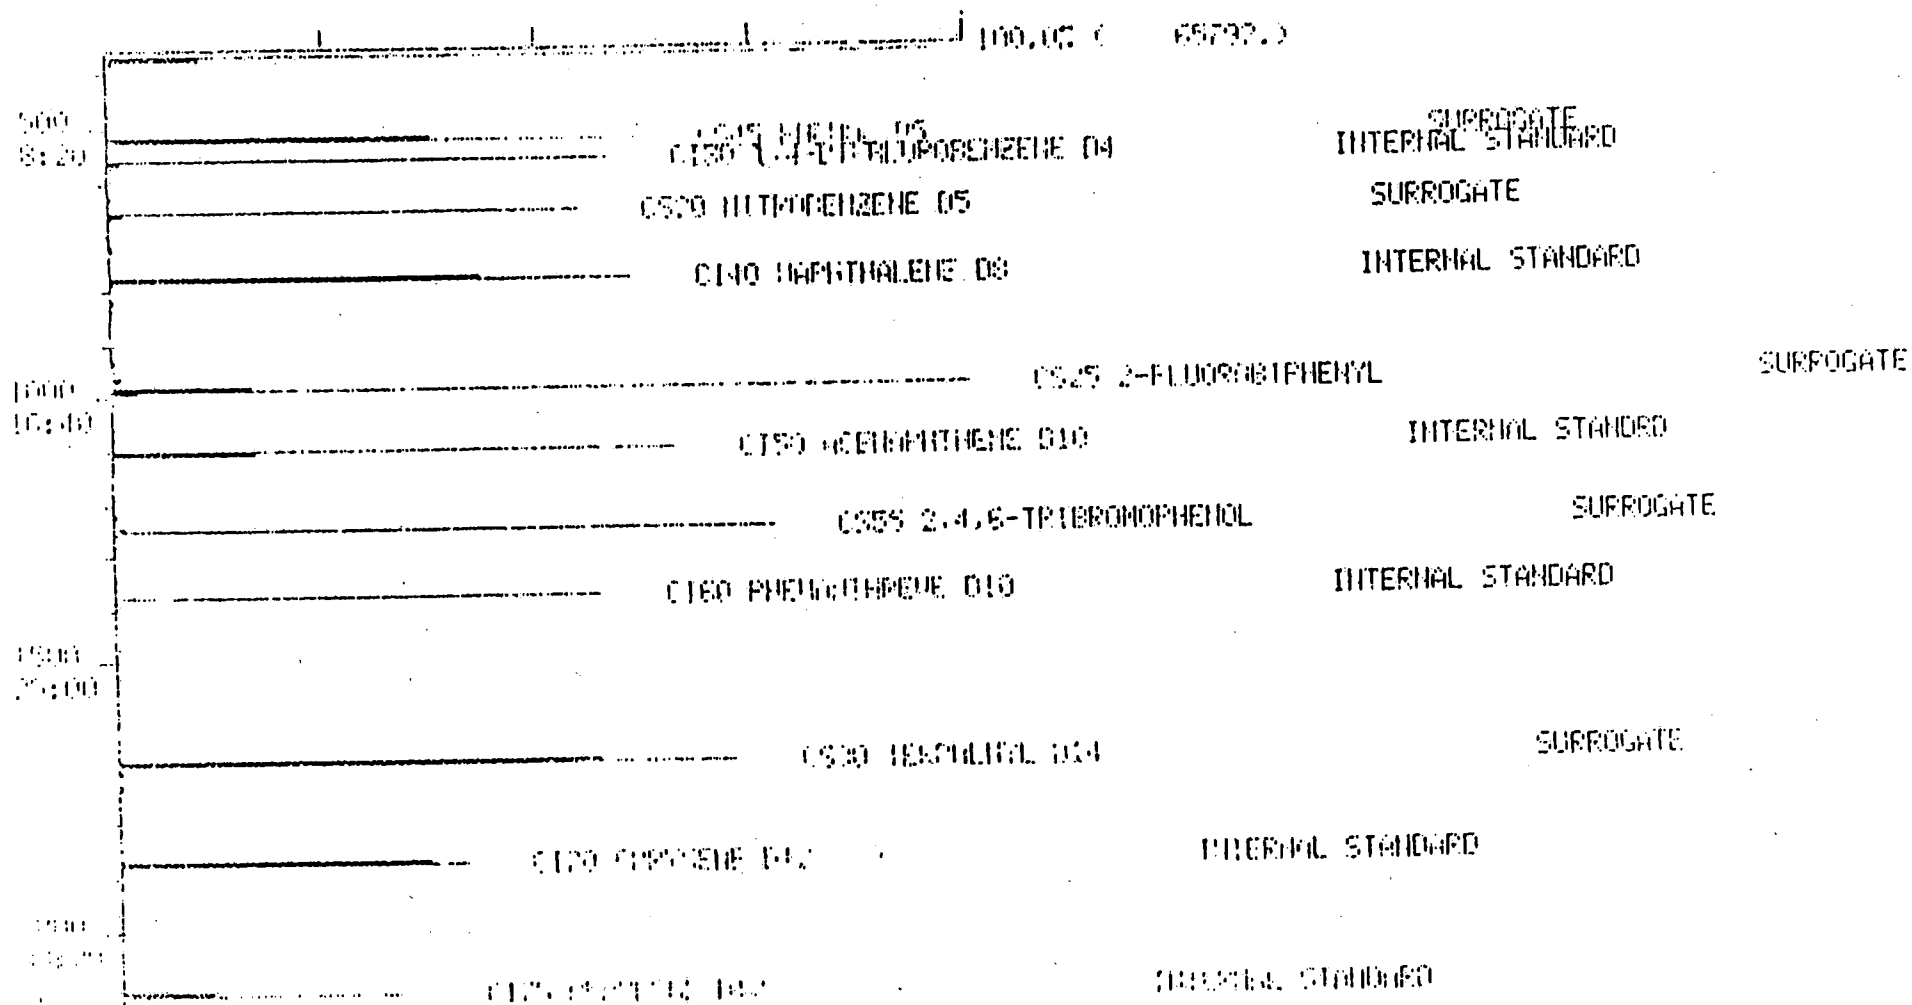 100.0% ( 65792.)
500 SURROGATE
8:20 CI30 D4 INTERNAL STANDARD
CS20 NITROBENZENE D5 SURROGATE
CI40 NAPHTHALENE D8 INTERNAL STANDARD
1000 CS25 2-FLUOROBIPHENYL SURROGATE
16:40 CI50 ACENAPHTHENE D10 INTERNAL STANDRD
CS55 2,4,6-TRIBROMOPHENOL SURROGATE
CI60 PHENANTHRENE D10 INTERNAL STANDARD
1500
25:00
CS30 TERPHENYL D14 SURROGATE
CI70 CHRYSENE D12 INTERNAL STANDARD
INTERNAL STANDARD